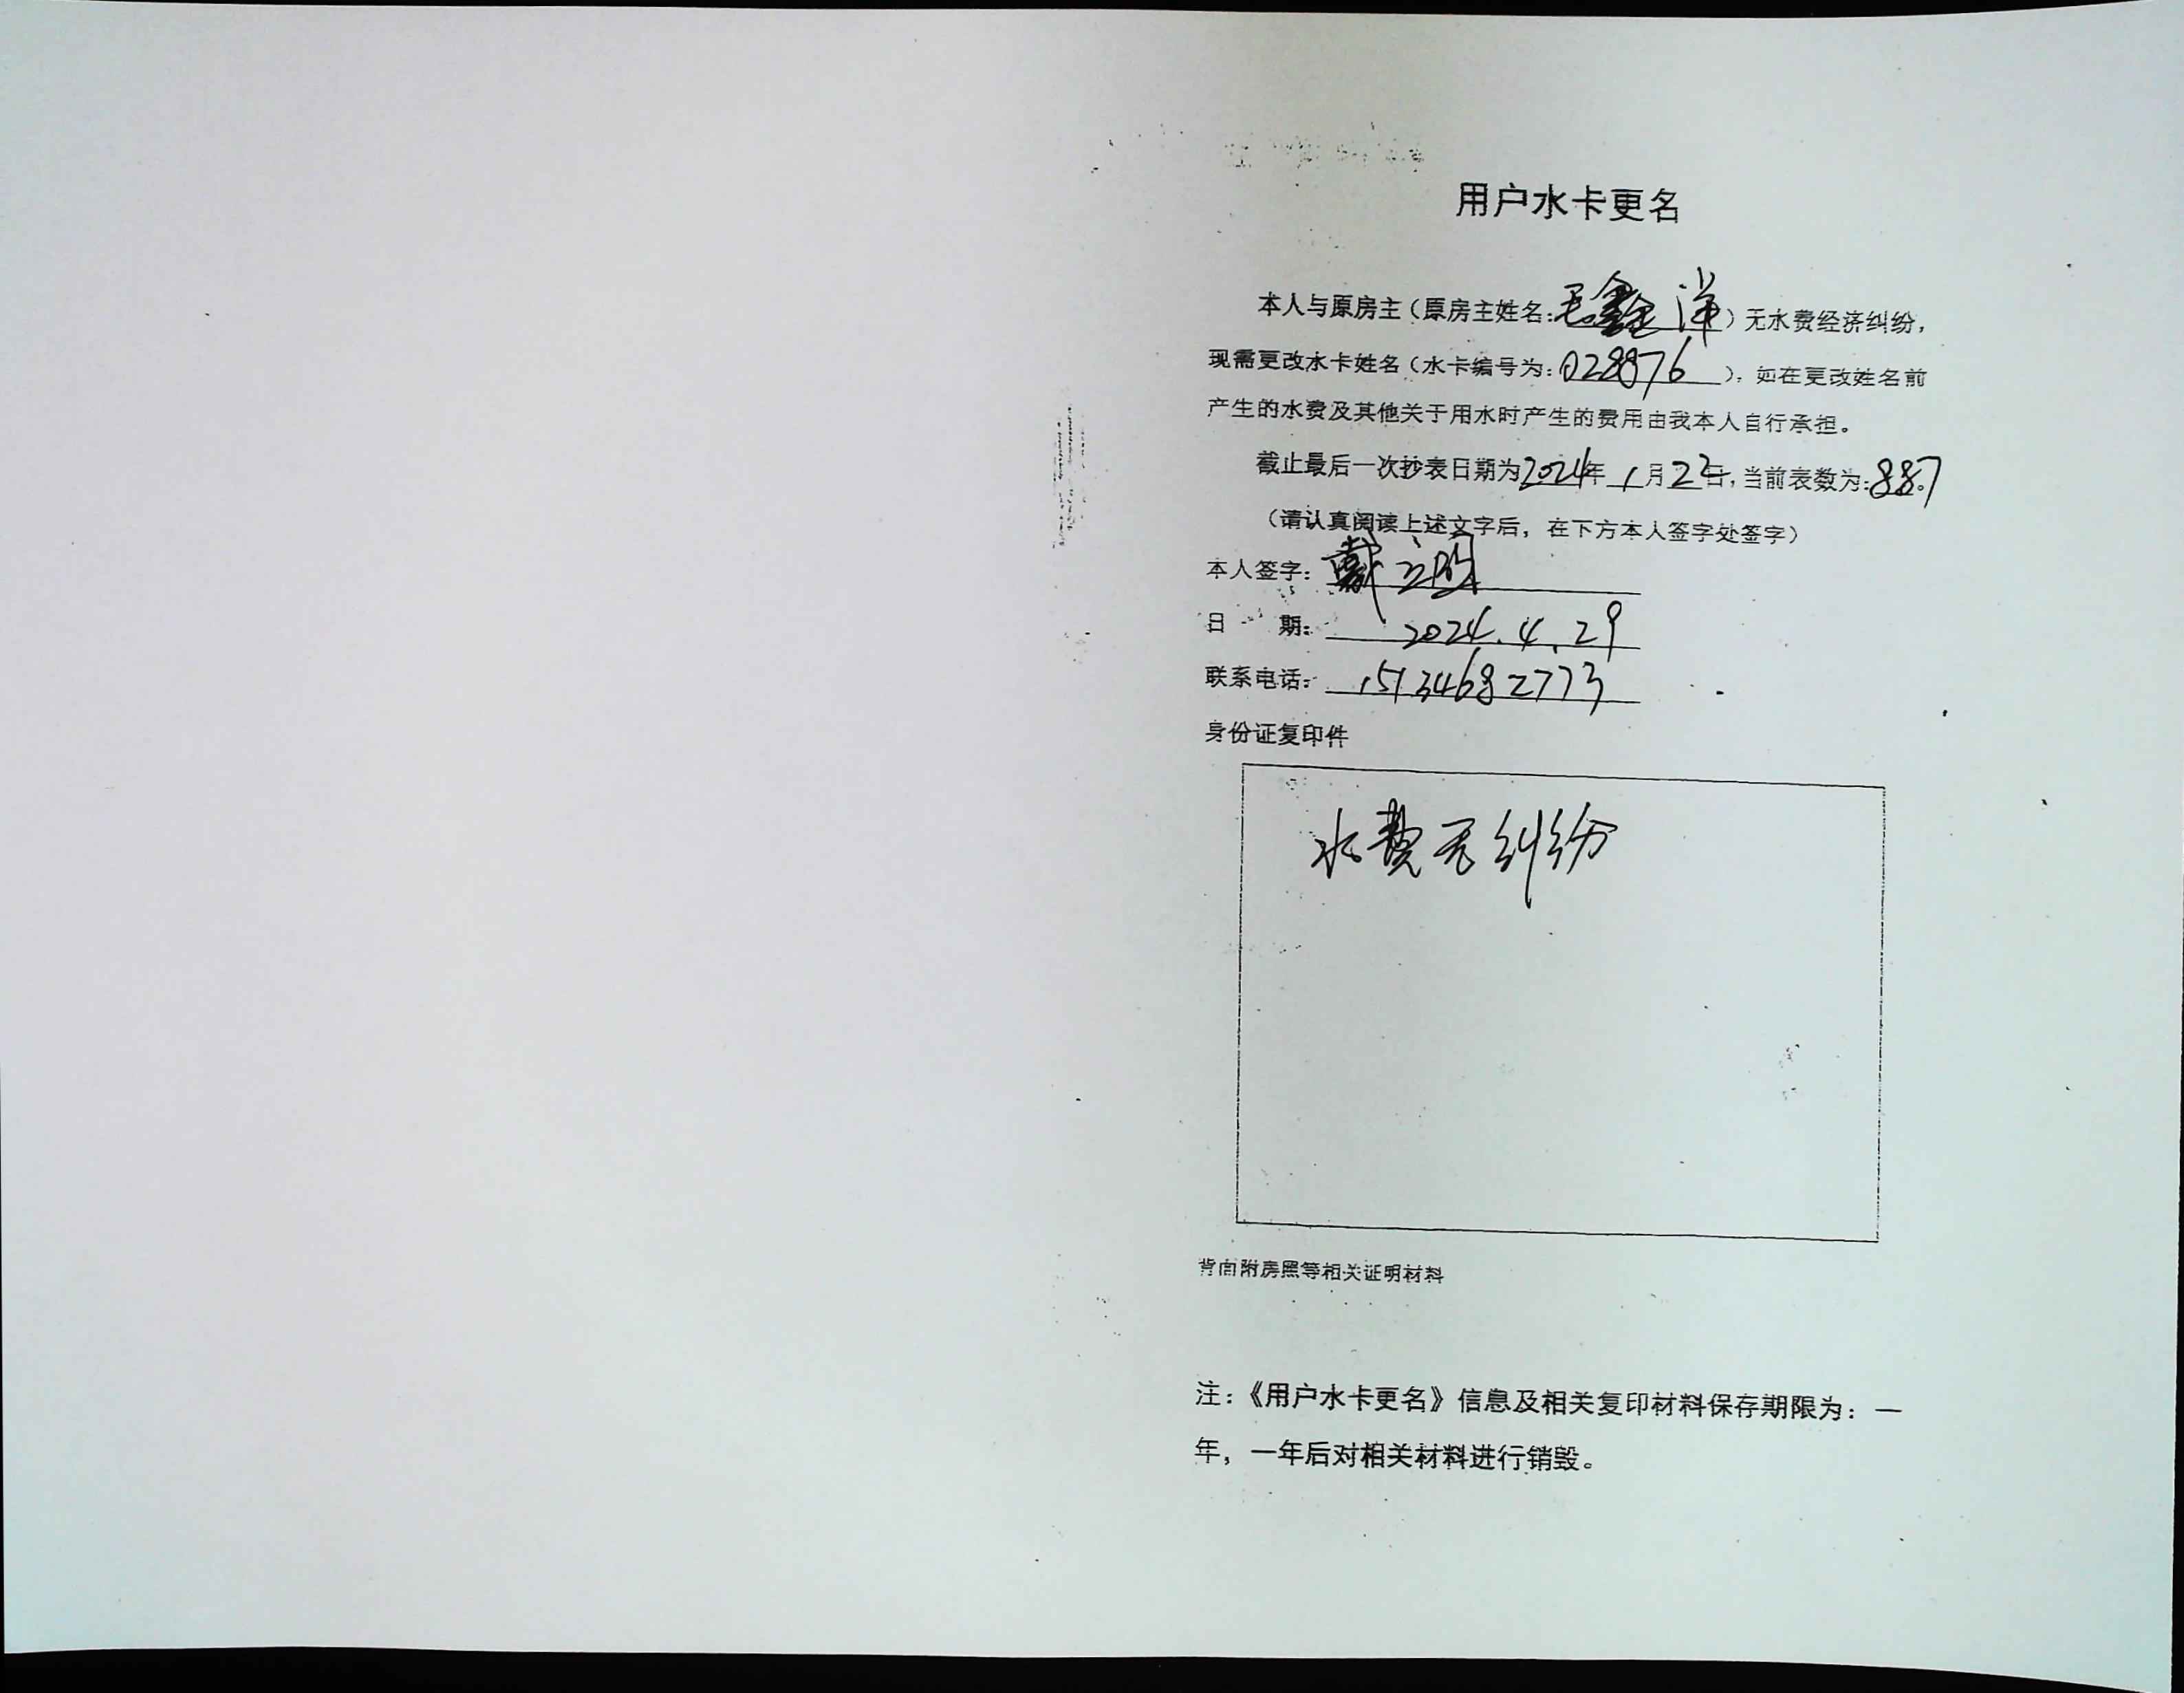 用户水卡更名
本人与原房主（原房主姓名：毛鑫洋）无水费经济纠纷，
现需更改水卡姓名（水卡编号为：028876），如在更改姓名前
产生的水费及其他关于用水时产生的费用由我本人自行承担。
截止最后一次抄表日期为2024年1月22日，当前表数为：887
（请认真阅读上述文字后，在下方本人签字处签字）
本人签字：戴立明
日 期：2024.4.29
联系电话：15134682773
身份证复印件
水费无纠纷
背面附房照等相关证明材料
注：《用户水卡更名》信息及相关复印材料保存期限为：一
年，一年后对相关材料进行销毁。